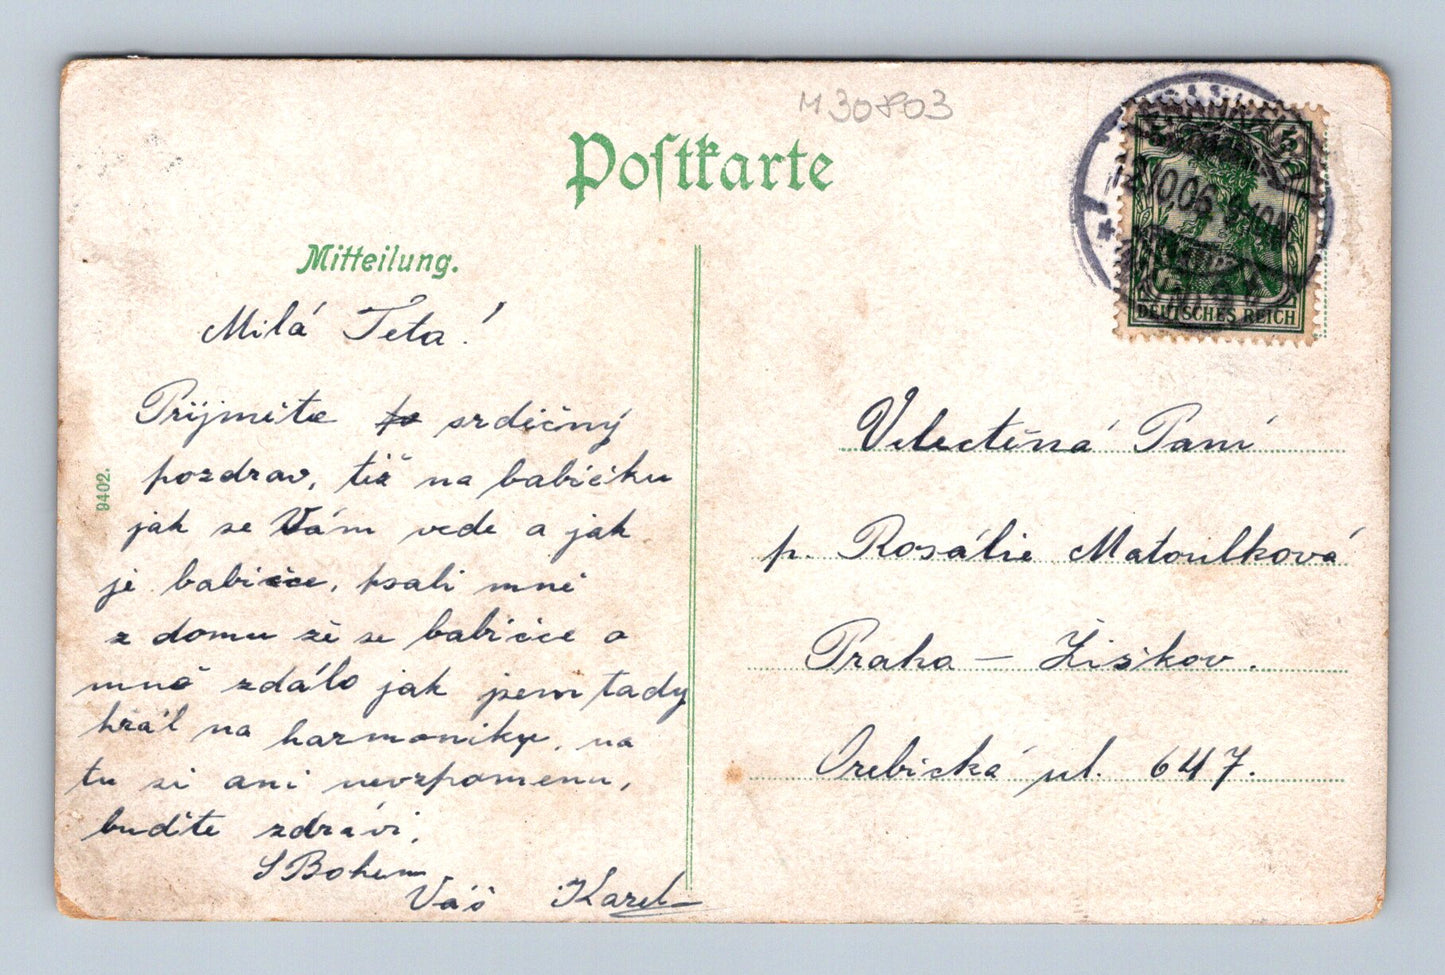 M30803
Postkarte
5
DEUTSCHES REICH
Mitteilung.
9402.
Milá Teta!
Přijměte srdéčný
pozdrav, též na babičku
jak se Vám vede a jak
je babičce, psali mně
z domu že se babičce o
mně zdálo jak jsem tady
hrál na harmoniky, na
tu si ani nevzpomenu,
buďte zdrávi.
S Bohem
Váš Karel
Velectěná Paní
p. Rosálie Matoulková
Praha — Žiškov.
Orebická ul. 647.